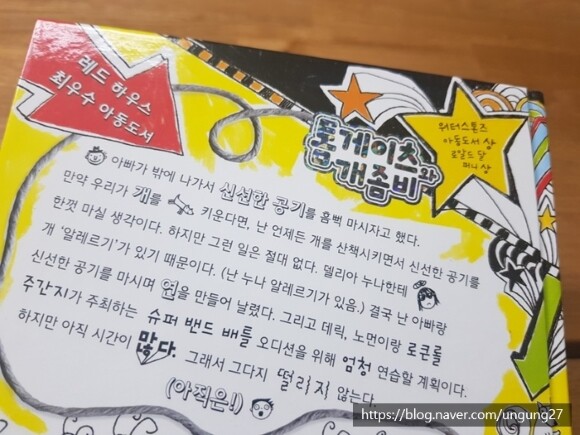 레드 하우스
최우수 아동도서
톰게이츠와
개좀비
워터스톤즈
아동도서 상
로알드 달
퍼니 상
아빠가 밖에 나가서 신선한 공기를 흠뻑 마시자고 했다.
만약 우리가 개를 키운다면, 난 언제든 개를 산책시키면서 신선한 공기를
한껏 마실 생각이다. 하지만 그런 일은 절대 없다. 델리아 누나한테
개 '알레르기'가 있기 때문이다. (난 누나 알레르기가 있음.) 결국 난 아빠랑
신선한 공기를 마시며 연을 만들어 날렸다. 그리고 데릭, 노먼이랑 로큰롤
주간지가 주최하는 슈퍼 밴드 배틀 오디션을 위해 엄청 연습할 계획이다.
하지만 아직 시간이 많다. 그래서 그다지 떨리지 않는다.
(아직은!)
https://blog.naver.com/ungung27